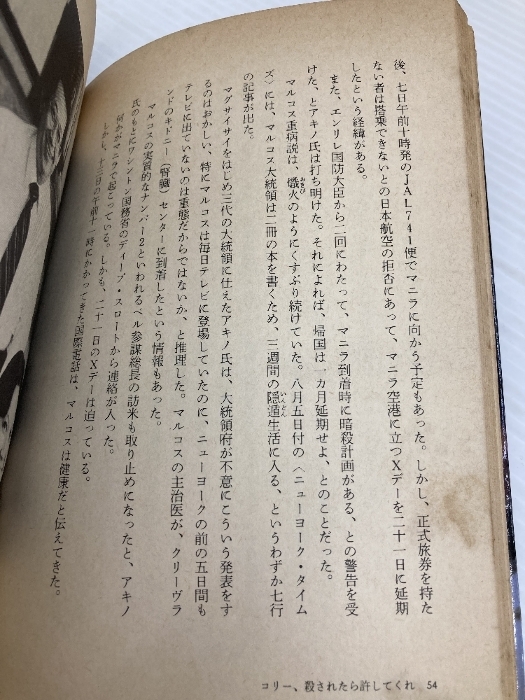 後、七日午前十時発のJAL741便でマニラに向かう予定もあった。しかし、正式旅券を持た
ない者は搭乗できないとの日本航空の拒否にあって、マニラ空港に立つXデーを二十一日に延期
したという経緯がある。
また、エンリレ国防大臣から二回にわたって、マニラ到着時に暗殺計画がある、との警告を受
けた、とアキノ氏は打ち明けた。それによれば、帰国は一カ月延期せよ、とのことだった。
マルコス重病説は、熾火のようにくすぶり続けていた。八月五日付の〈ニューヨーク・タイム
ズ〉には、マルコス大統領は二冊の本を書くため、三週間の隠遁生活に入る、というわずか七行
の記事が出た。
マグサイサイをはじめ三代の大統領に仕えたアキノ氏は、大統領府が不意にこういう発表をす
るのはおかしい、特にマルコスは毎日テレビに登場していたのに、ニューヨークの前の五日間も
テレビに出ていないのは重態だからではないか、と推理した。マルコスの主治医が、クリーヴラ
ンドのキドニー（腎臓）センターに到着したという情報もあった。
マルコスの実質的なナンバー2といわれるベル参謀総長の訪米も取り止めになったと、アキノ
氏のもとにワシントン国務省のディープ・スロートから連絡が入った。
何かがマニラで起こっている。しかも、二十一日のXデーは迫っている。
しかし、十三日の午前十一時にかかってきた国際電話は、マルコスは健康だと伝えてきた。
コリー、殺されたら許してくれ 54